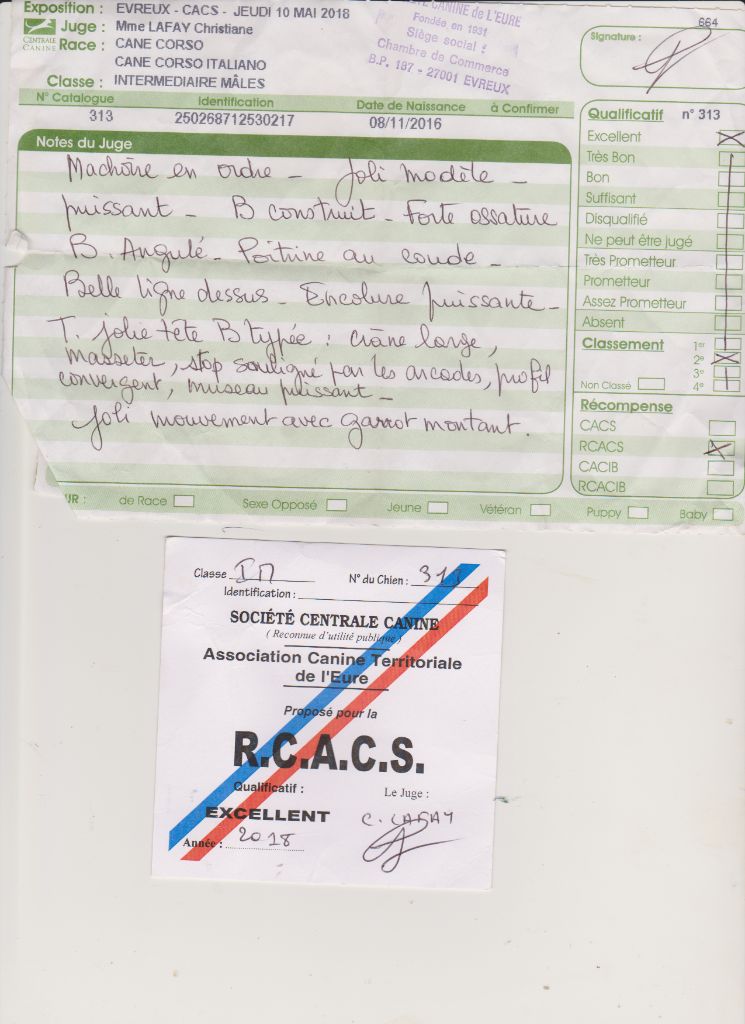 Exposition : EVREUX - CACS - JEUDI 10 MAI 2018
Juge : Mme LAFAY Christiane
CENTRALE
CANINE
Race : CANE CORSO
CANE CORSO ITALIANO
Classe : INTERMEDIAIRE MÂLES
CANINE de L'EURE
Fondée en 1931
Siège social :
Chambre de Commerce
B.P. 187 - 27001 EVREUX
664
Signature :
N° Catalogue Identification Date de Naissance à Confirmer
313 250268712530217 08/11/2016
Notes du Juge
Machoire en ordre - Joli modèle -
puissant - B construit - Forte ossature
B. Angulé - Poitrine au coude -
Belle ligne dessus - Encolure puissante -
T. jolie tête B typée : crâne large,
masseter, stop souligné par les arcades, profil
convergent, museau puissant -
Joli mouvement avec garrot montant.
Qualificatif n° 313
Excellent
Très Bon
Bon
Suffisant
Disqualifié
Ne peut être jugé
Très Prometteur
Prometteur
Assez Prometteur
Absent
Classement 1er
2e
3e
Non Classé 4e
Récompense
CACS
RCACS
CACIB
RCACIB
UR : de Race Sexe Opposé Jeune Vétéran Puppy Baby
Classe IM N° du Chien : 313
Identification :
SOCIÉTÉ CENTRALE CANINE
( Reconnue d'utilité publique )
Association Canine Territoriale
de l'Eure
Proposé pour la
R.C.A.C.S.
Qualificatif : Le Juge :
EXCELLENT C. LAFAY
Année : 2018